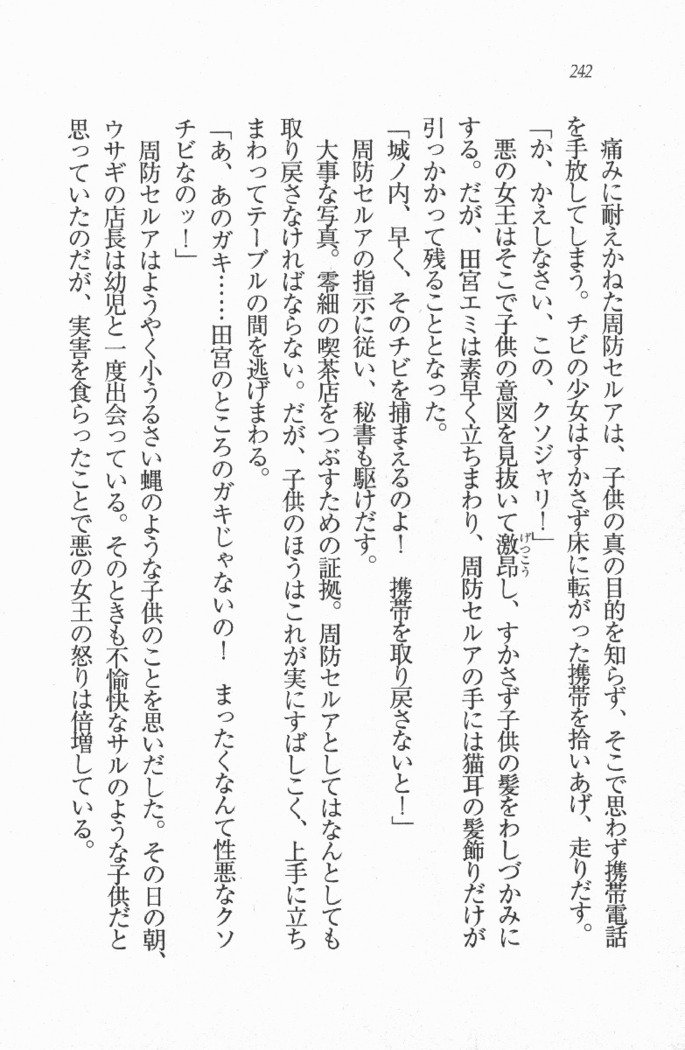 242
痛みに耐えかねた周防セルアは、子供の真の目的を知らず、そこで思わず携帯電話
を手放してしまう。チビの少女はすかさず床に転がった携帯を拾いあげ、走りだす。
「か、かえしなさい、この、クソジャリ!」
悪の女王はそこで子供の意図を見抜いて激昂し、すかさず子供の髪をわしづかみに
げつこう
する。だが、田宮エミは素早く立ちまわり、周防セルアの手には猫耳の髪飾りだけが
引っかかって残ることとなった。
「城ノ内、早く、そのチビを捕まえるのよ! 携帯を取り戻さないと!」
周防セルアの指示に従い、秘書も駆けだす。
大事な写真。零細の喫茶店をつぶすための証拠。周防セルアとしてはなんとしても
取り戻さなければならない。だが、子供のほうはこれが実にすばしこく、上手に立ち
まわってテーブルの間を逃げまわる。
「あ、あのガキ……田宮のところのガキじゃないの! まったくなんて性悪なクソ
チビなのッ!」
周防セルアはようやく小うるさい蝿のような子供のことを思いだした。その日の朝、
ウサギの店長は幼児と一度出会っている。そのときも不愉快なサルのような子供だと
思っていたのだが、実害を食らったことで悪の女王の怒りは倍増している。